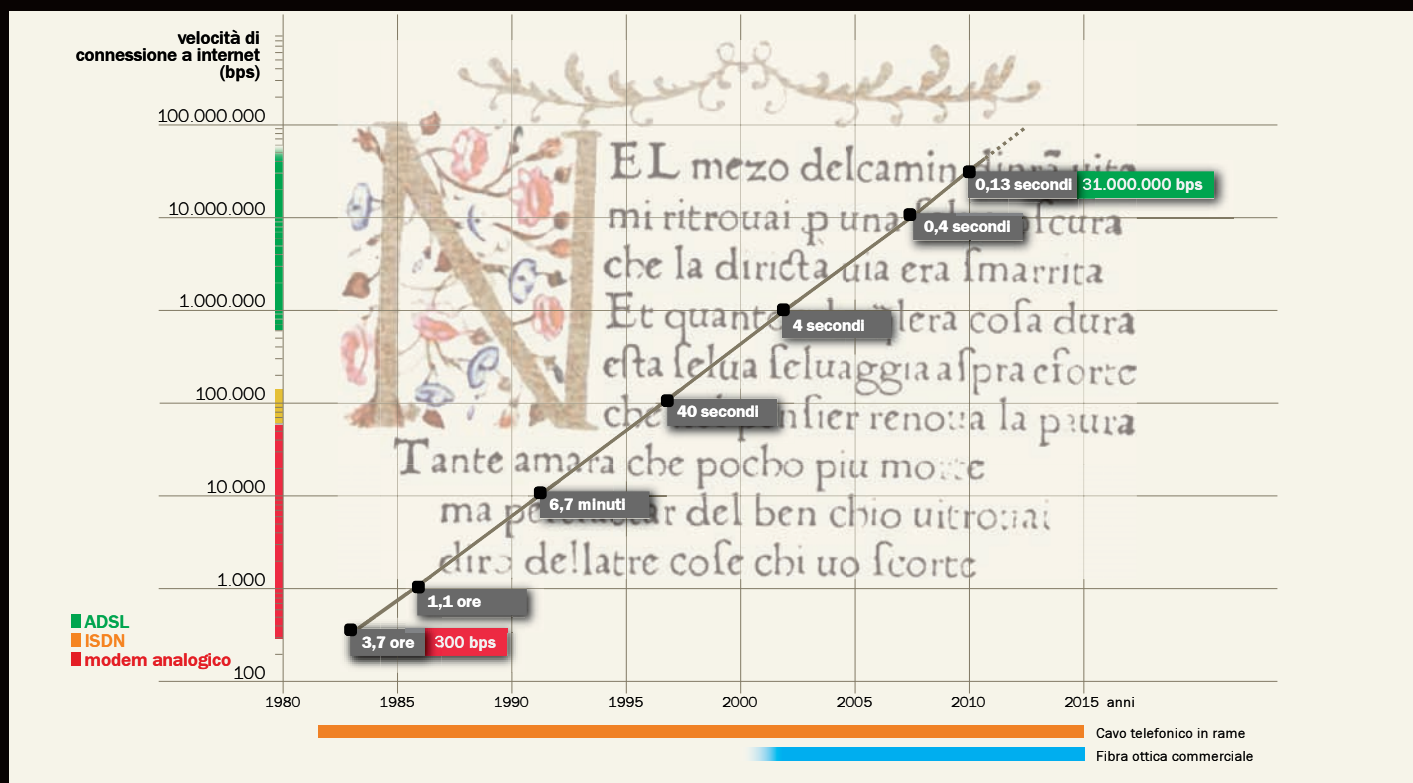 velocità di
connessione a internet
(bps)
100.000.000
10.000.000
1.000.000
100.000
10.000
1.000
100
ADSL
ISDN
modem analogico
EL mezo delcamin vita
mi ritrouai una ſcura
che la diricta uia era ſmarrita
Et quanto dura
eſta ſelua ſeluaggia aſpra eforte
che la paura
Tante amara che pocho piu morte
ma del ben chio
chi uo ſcorte
0,13 secondi 31.000.000 bps
0,4 secondi
4 secondi
40 secondi
6,7 minuti
1,1 ore
3,7 ore 300 bps
1980 1985 1990 1995 2000 2005 2010 2015 anni
Cavo telefonico in rame
Fibra ottica commerciale